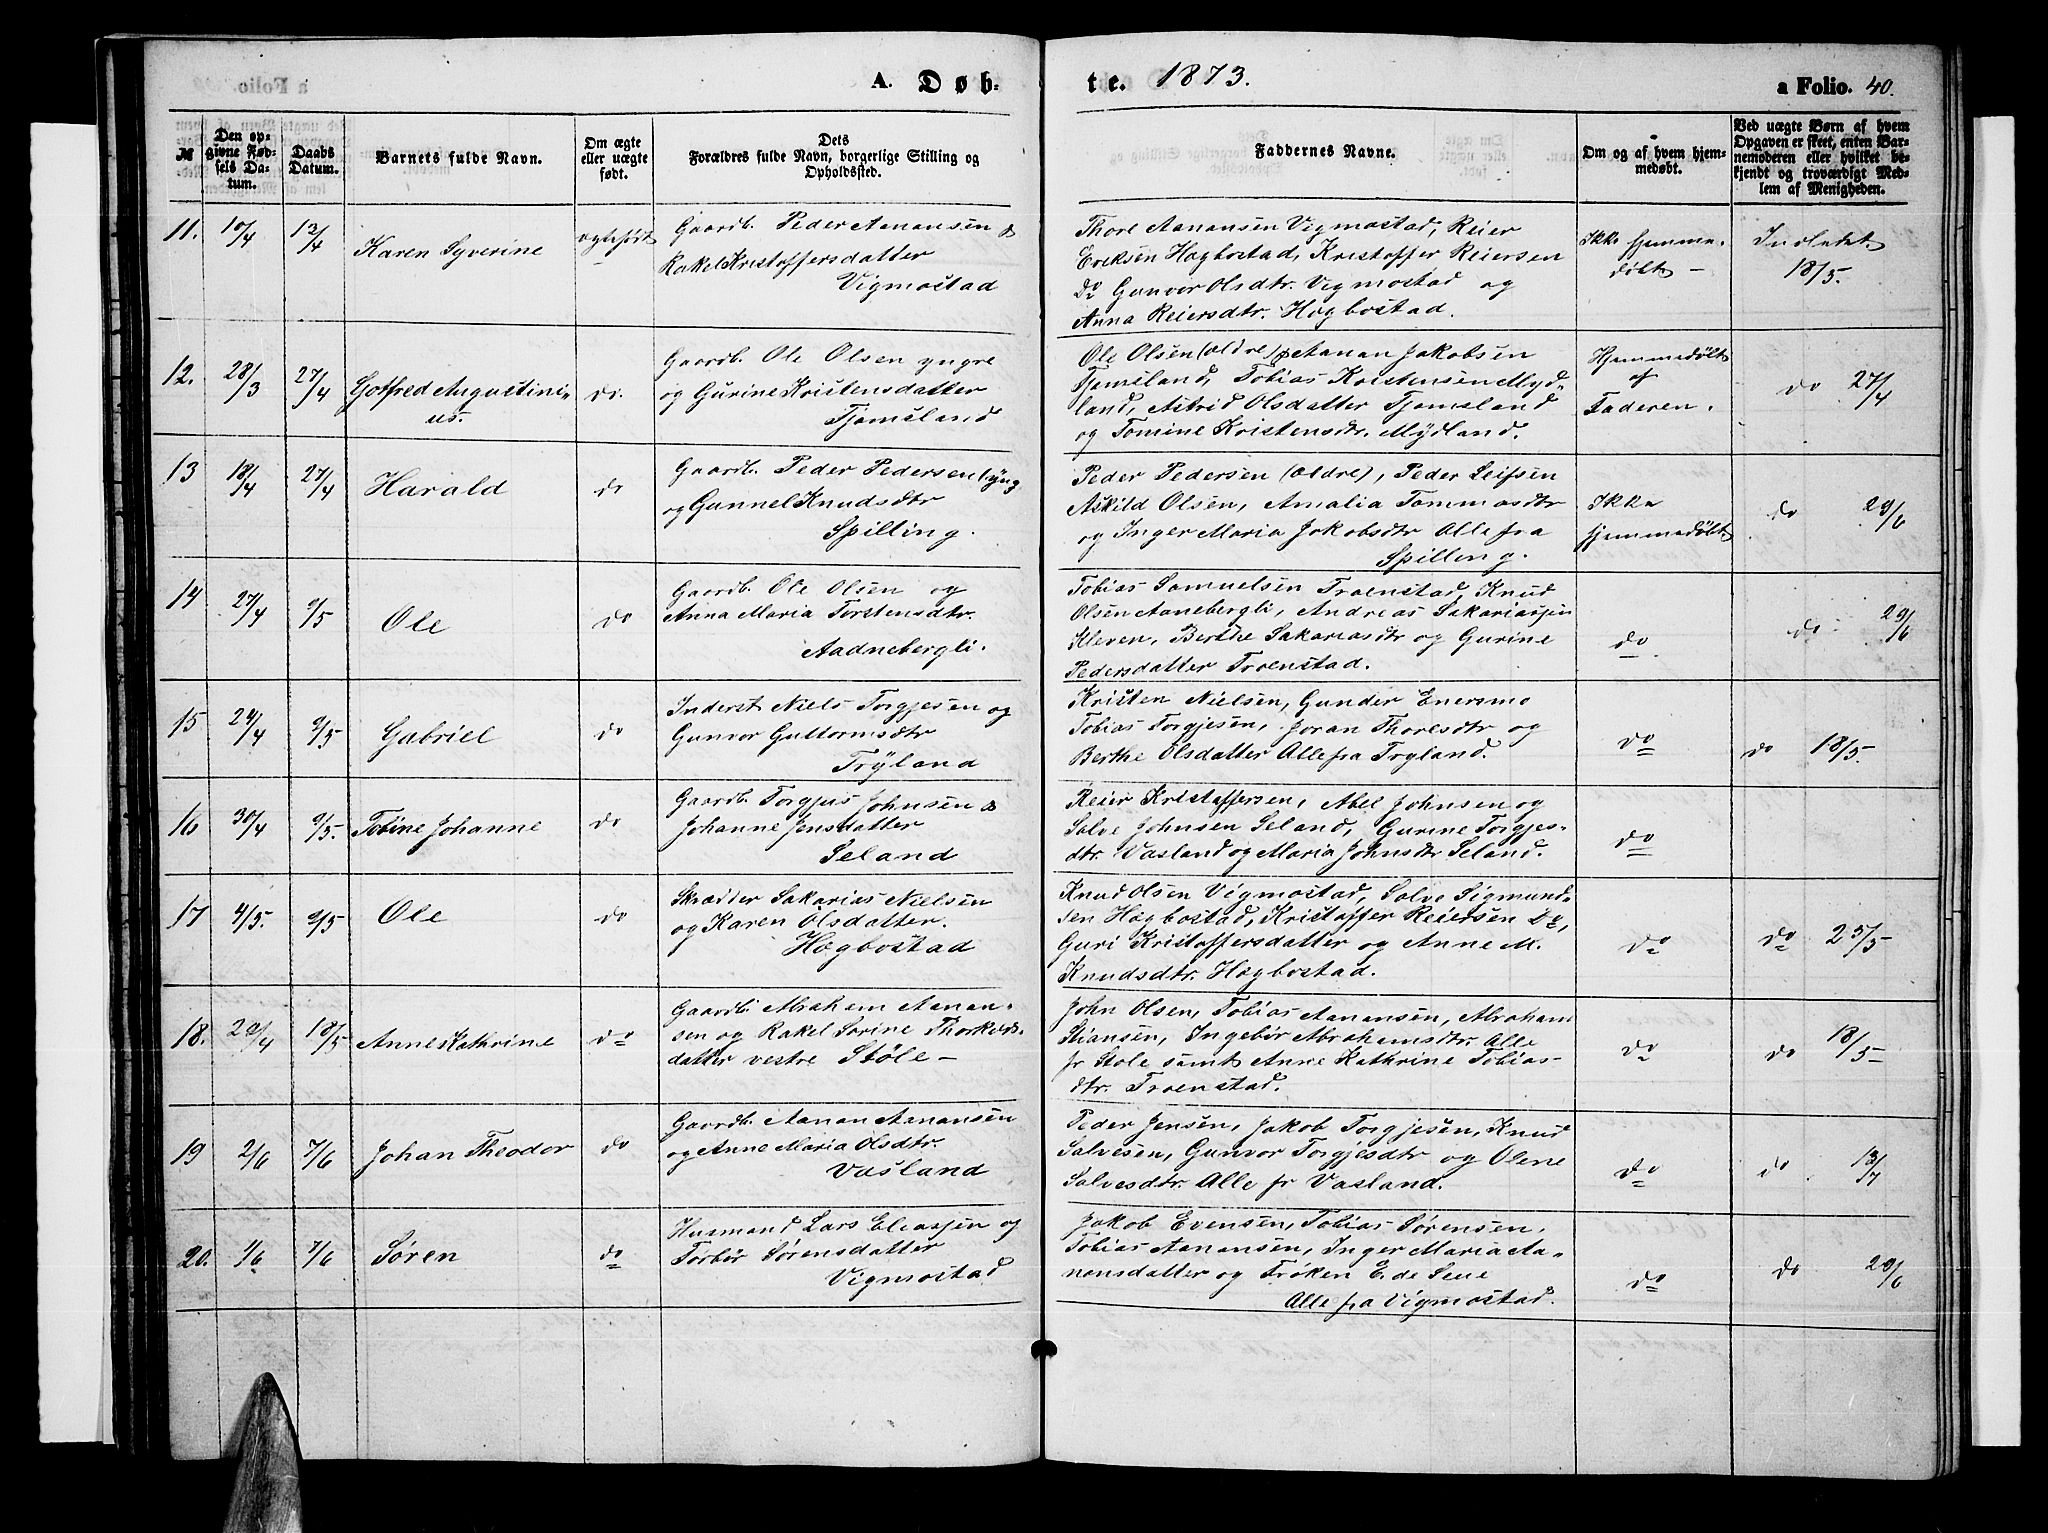 A. Døb-
te. 1873.
a Folio. 40.
№
Den op-
givne Fød-
sels Da-
tum.
Daabs
Datum.
Barnets fulde Navn.
Om ægte
eller uægte
født.
Dets
Forældres fulde Navn, borgerlige Stilling og
Opholdssted.
Faddernes Navne.
Om og af hvem hjem-
medøbt.
Ved uægte Børn af hvem
Opgaven er skeet, enten Bar-
nemoderen eller hvilket be-
kjendt og troværdigt Med-
lem af Menigheden.
11. 10/4 13/4 Karen Syverine ægtefødt
Gaardb. Peder Aanansen &
Rakel Kristoffersdatter
Vigmostad
Thore Aanansen Vigmostad, Reier
Eriksen Høgbostad, Kristoffer Reiersen
Do Gunvor Olsdtr. Vigmostad og
Anna Reiersdtr. Høgbostad.
Ikke hjemme-
døbt –
Indledet
18/5.
12. 28/3 27/4 Gotfred Augustini-
us. do.
Gaardb. Ole Olsen yngre
og Gurine Kristensdatter
Tjomsland
Ole Olsen (ældre) Aanan Jakobsen
Tjomsland, Tobias Kristensen Myd-
land, Astrid Olsdatter Tjomsland
og Tomine Kristensdtr. Mydland.
Hjemmedøbt
af
Faderen.
do 27/4
13 18/4 27/4 Harald do
Gaardb. Peder Pedersen (yng
og Gunnel Knudsdtr
Spilling.
Peder Pedersen (ældre), Peder Leifsen
Askild Olsen, Amalia Tommasdtr
og Inger Maria Jakobsdtr Alle fra
Spilling.
Ikke
hjemmedøbt
do 29/6
14 27/4 9/5 Ole do
Gaardb. Ole Olsen og
Anna Maria Torstensdtr.
Aadnebergli.
Tobias Samuelsen Troenstad, Knud
Olsen Aanebergli, Andreas Sakariassen
Kleven, Berthe Sakariasdtr og Gurine
Pedersdatter Troenstad.
do
do 29/6
15 24/4 9/5 Gabriel do
Inderst Niels Torgjesen og
Gunvor Guttormsdtr
Trÿland
Kristen Nielsen, Gunder Enersmo
Tobias Torgjesen, Joran Thoresdtr og
Berthe Olsdatter Alle fra Tryland.
do
do 18/5.
16 30/4 9/5. Tobine Johanne do
Gaardb. Torgjus Johnsen &
Johanne Jensdatter
Seland
Reier Kristoffersen, Abel Johnsen og
Salve Johnsen Seland, Gurine Torgjes-
dtr. Vasland og Maria Johnsdtr Seland.
do
17 4/5. 9/5 Ole do
Skrædder Sakarias Nielsen
og Karen Olsdatter.
Høgbostad
Knud Olsen Vigmostad, Salve Sigmund-
sen Høgbostad, Kristoffer Reiersen Do,
Guri Kristoffersdatter og Anne M.
Knudsdtr. Høgbostad.
do
do 25/5
18. 29/4 18/5 Anne Kathrine do
Gaardb. Abraham Aanan-
sen og Rakel Sorine Thorkilds-
datter vestre Støle –
John Olsen, Tobias Aanansen, Abraham
Stiansen, Ingebor Abrahamsdtr. Alle
fr Stole samt Anne Kathrine Tobias-
dtr. Troenstad.
do
do 18/5
19 2/6 7/6 Johan Theodor do
Gaardb. Aanan Aanansen
og Anne Maria Olsdtr.
Vasland
Peder Jensen, Jakob Torgjesen, Knud
Salvesen, Gunvor Torgjesdtr og Olene
Salvesdtr. Alle fr Vasland.
do
do 13/7
20. 1/6 7/6 Søren do
Husmand Lars Eliassen og
Torbør Sørensdatter
Vigmostad
Jakob Evensen, Tobias Sørensen,
Tobias Aanansen, Inger Maria Aa-
nonsdatter og Frøken E. de Seue
Alle fra Vigmostad.
do
do 29/6